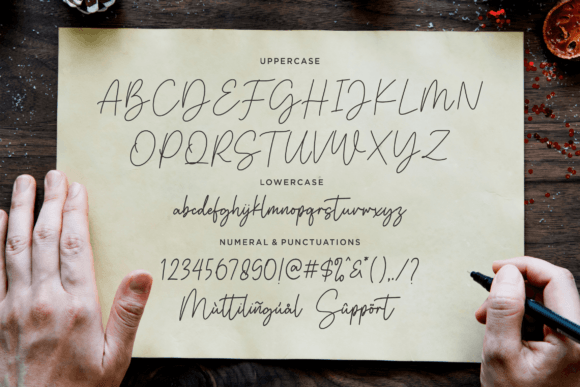 UPPERCASE
ABCDEFGHIJKLMN
OPQRSTUVWXYZ
LOWERCASE
abcdefghijklmnopqrstuvwxyz
NUMERAL & PUNCTUATIONS
1234567890!@#$%^&*(),./?
Mùttilïñgúål Sûppõrt